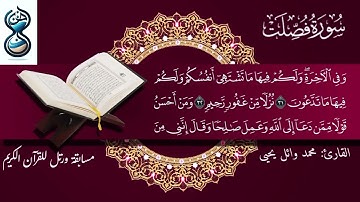 سُورَةُ فُصِّلَتْ
وَفِي ٱلْأٓخِرَةِۖ وَلَكُمْ فِيهَا مَا تَشْتَهِيٓ أَنفُسُكُمْ وَلَكُمْ
فِيهَا مَا تَدَّعُونَ ٣١ نُزُلٗا مِّنْ غَفُورٖ رَّحِيمٖ ٣٢ وَمَنْ أَحْسَنُ
قَوْلٗا مِّمَّن دَعَآ إِلَى ٱللَّهِ وَعَمِلَ صَٰلِحٗا وَقَالَ إِنَّنِي مِنَ
القارئ: محمد وائل يحيى
مسابقة ورتل للقرآن الكريم